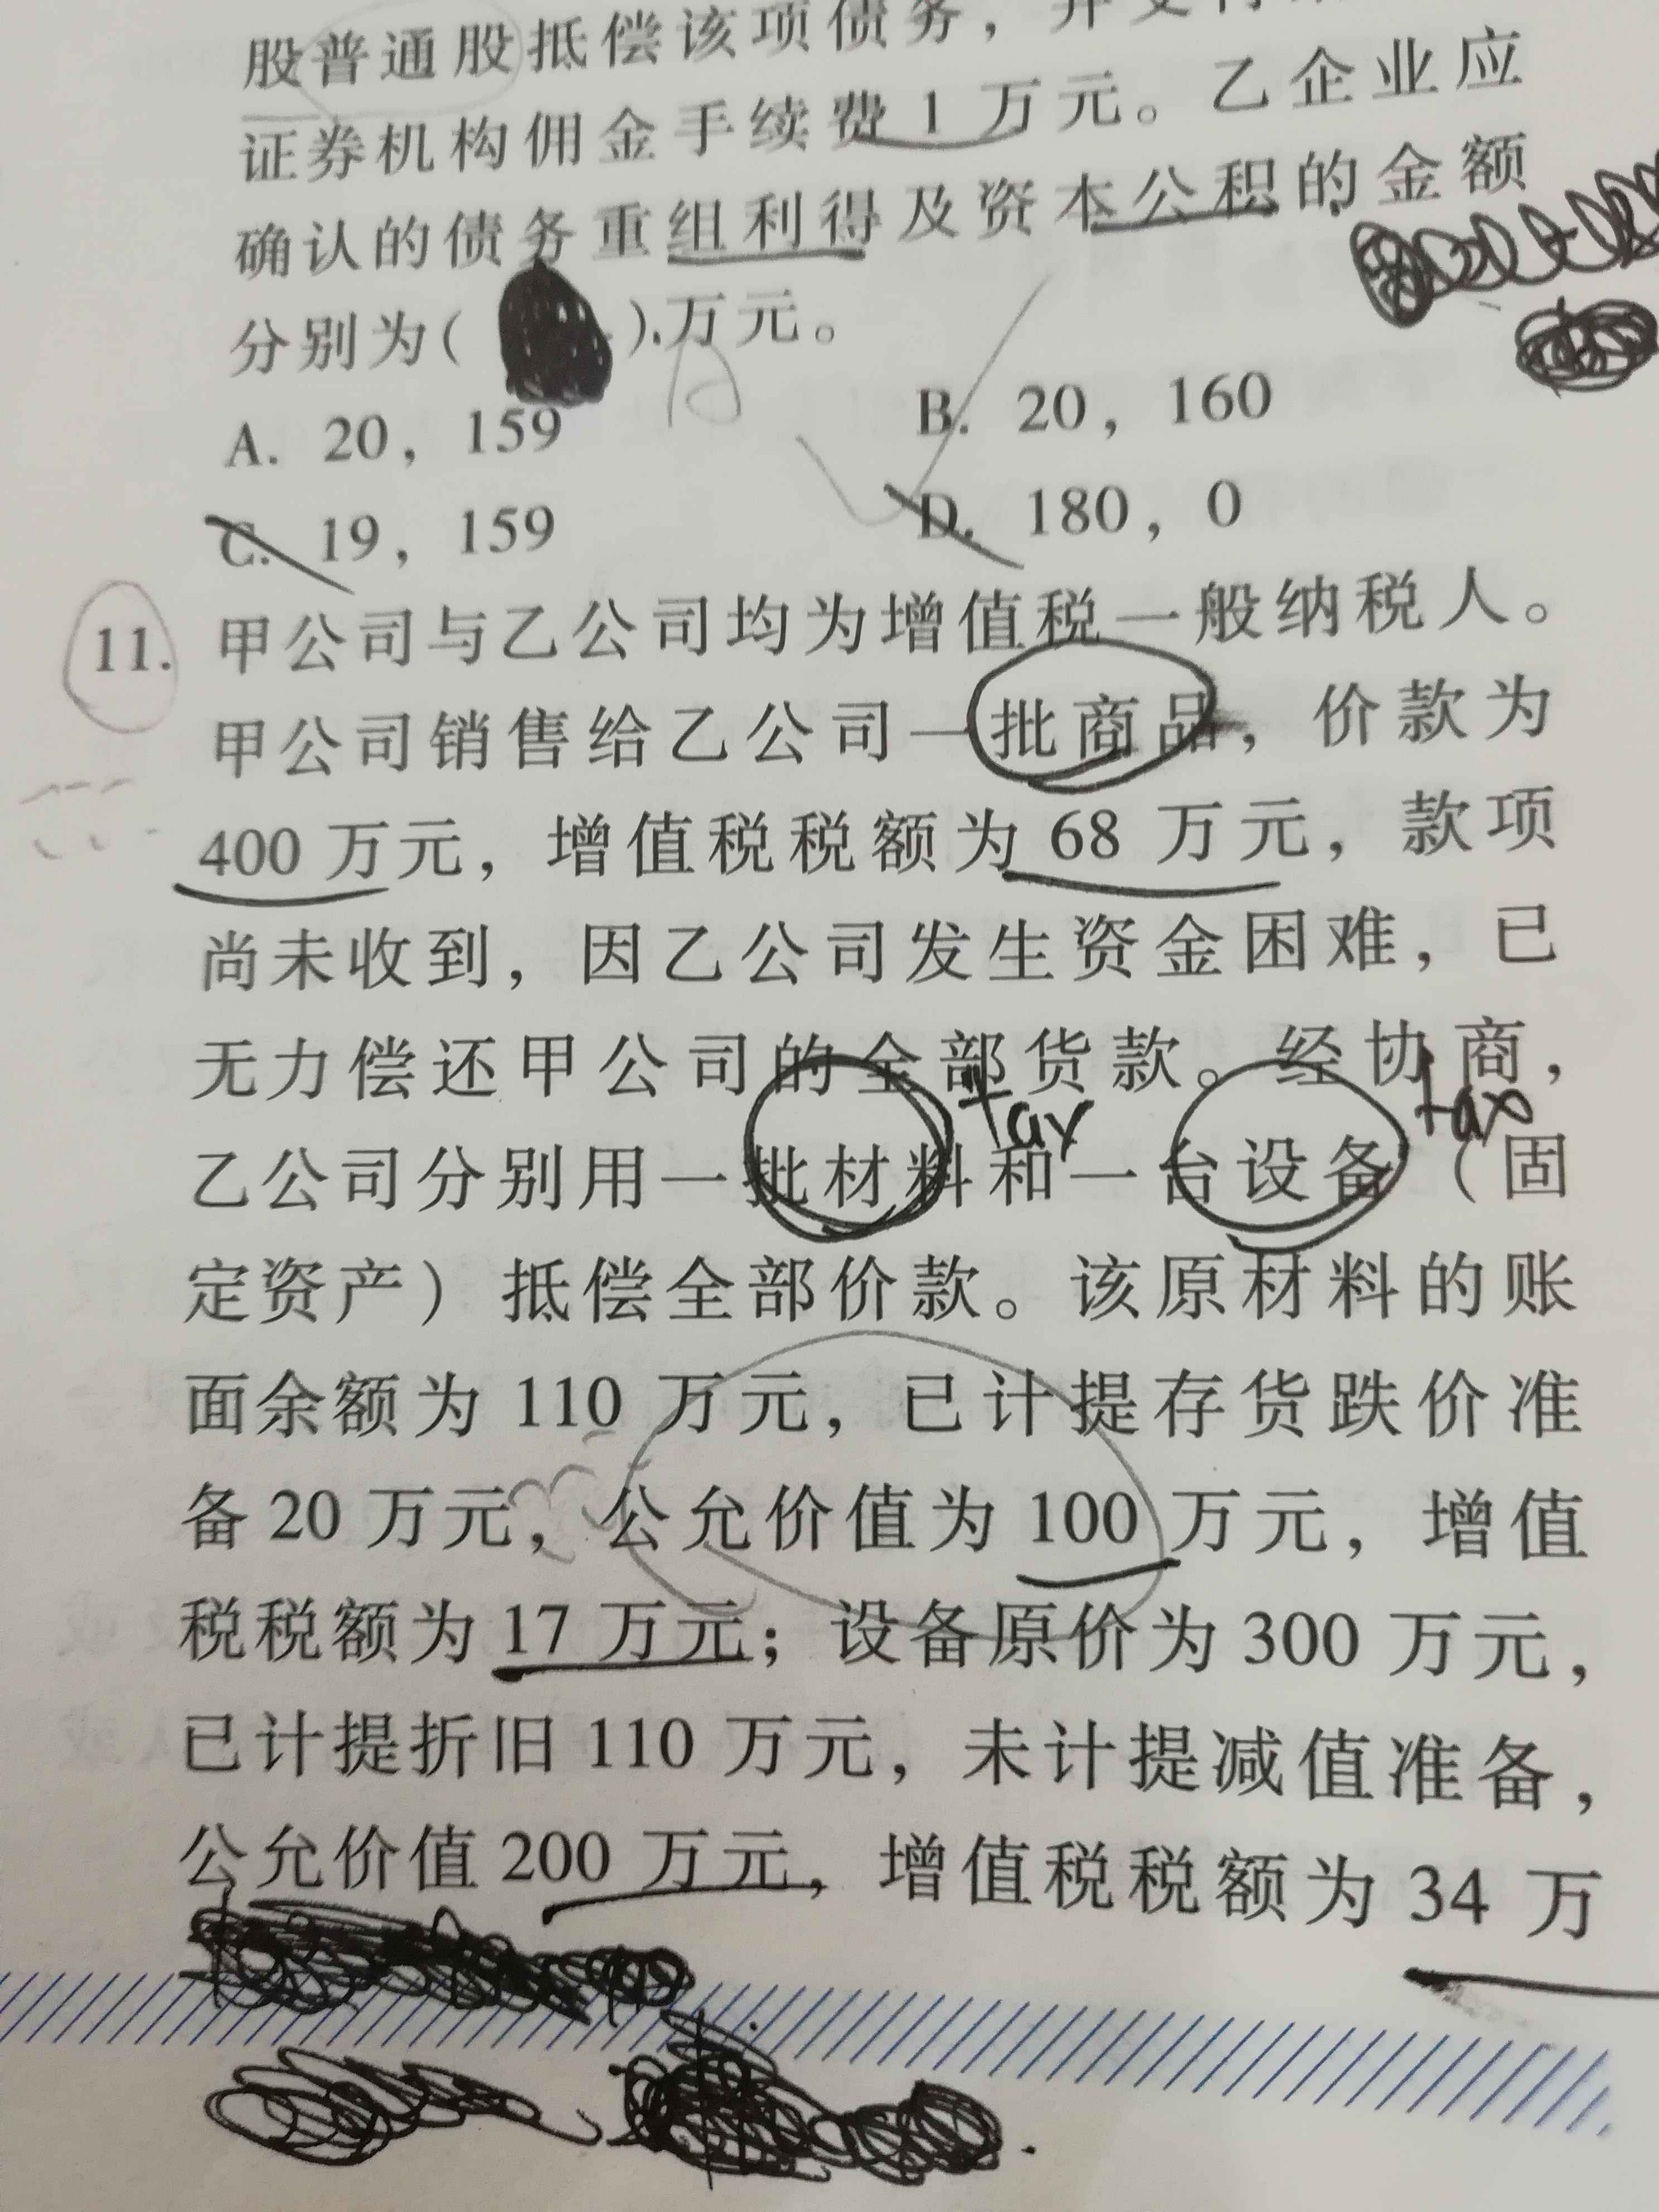 股普通股抵偿该项债务，并支付
证券机构佣金手续费 1 万元。乙企业应
确认的债务重组利得及资本公积的金额
分别为( ).万元。
A. 20，159
B. 20，160
C. 19，159
D. 180，0
11. 甲公司与乙公司均为增值税一般纳税人。
甲公司销售给乙公司一批商品，价款为
400 万元，增值税税额为 68 万元，款项
尚未收到，因乙公司发生资金困难，已
无力偿还甲公司的全部货款。经协商，
tax
tax
乙公司分别用一批材料和一台设备（固
定资产）抵偿全部价款。该原材料的账
面余额为 110 万元，已计提存货跌价准
备 20 万元，公允价值为 100 万元，增值
税税额为 17 万元；设备原价为 300 万元，
已计提折旧 110 万元，未计提减值准备，
公允价值 200 万元，增值税税额为 34 万